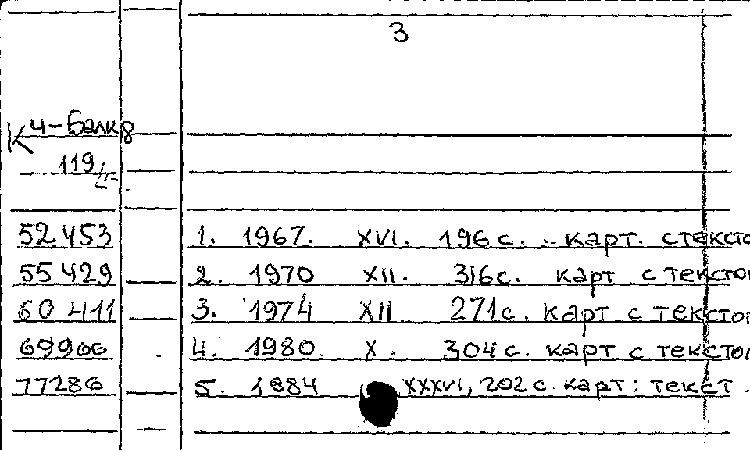 3
К Ч-Балк 8
119/
52453 1. 1967. XVI. 196 с. карт. с тексто
55429 2. 1970 XII. 316 с. карт с тексто
60411 3. 1974 XII 271 с. карт с тексто
69966 4. 1980 X. 304 с. карт с тексто
77286 5. 1984 XXXVI, 202 с. карт: текст